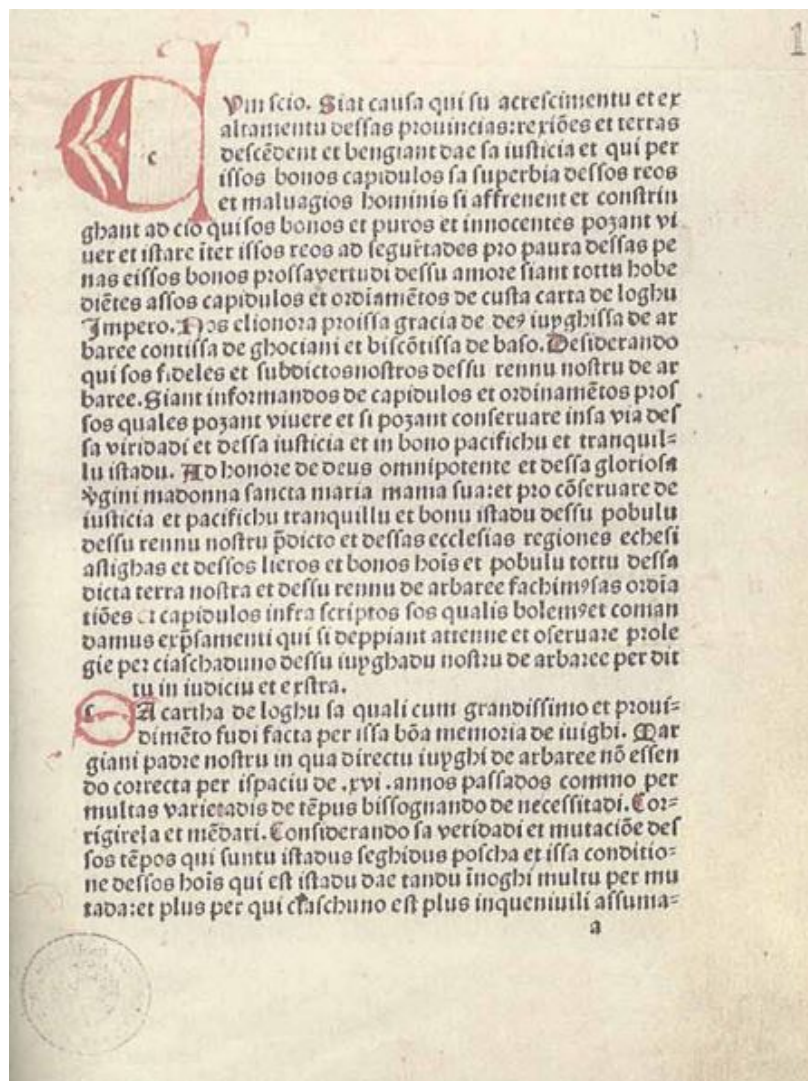 1
CVm scio. Siat causa qui su acrescimentu et ex
altamentu dessas prouincias: rexiões et terras
descēdent et bengiant dae sa iusticia et qui per
issos bonos capidulos sa superbia dessos reos
et maluagios hominis si affrenent et constrin
ghant ad cio qui sos bonos et puros et innocentes pozant vi
uer et istare īter issos reos ad segurtades pro paura dessas pe
nas eissos bonos prossavertudi dessu amore siant tottu hobe
diētes assos capidulos et ordīamētos de custa carta de loghu
Impero. Nos elionora proissa gracia de deꝯ iuyghissa de ar
baree contissa de ghociani et biscōtissa de baso. Desiderando
qui sos fideles et subdictosnostros dessu rennu nostru de ar
baree. Siant informandos de capidulos et ordinamētos pros
sos quales pozant viuere et si pozant conseruare insa via des
sa viridadi et dessa iusticia et in bono pacifichu et tranquil=
lu istadu. Ad honore de deus omnipotente et dessa gloriosa
v̄gini madonna sancta maria mama sua: et pro cōseruare de
iusticia et pacifichu tranquillu et bonu istadu dessu pobulu
dessu rennu nostru p̄dicto et dessas ecclesias regiones echesi
astighas et dessos lieros et bonos hoīs et pobulu tottu dessa
dicta terra nostra et dessu rennu de arbaree fachimꝯsas ordīa
tiões et capidulos infra scriptos sos qualis bolemꝯet coman
damus exp̄samenti qui si deppiant attenne et oseruare prole
gie per ciaschaduno dessu iuyghadu nostru de arbaree per dit
tu in iudiciu et exstra.
SA cartha de loghu sa quali cum grandissimo et proui=
dimēto fudi facta per issa bōa memoria de iuighi. Mar
giani padre nostru in qua directu iuyghi de arbaree nō essen
do correcta per ispaciu de .xvi. annos passados commo per
multas varietadis de tēpus bissognando de necessitadi. Cor=
rigirela et mēdari. Considerando sa veridadi et mutaciōe des
sos tēpos qui suntu istadus seghidus poscha et issa conditio=
ne dessos hoīs qui est istadu dae tandu īnoghi multu per mu
tada: et plus per qui ciaschuno est plus inqueniuili assuma=
a